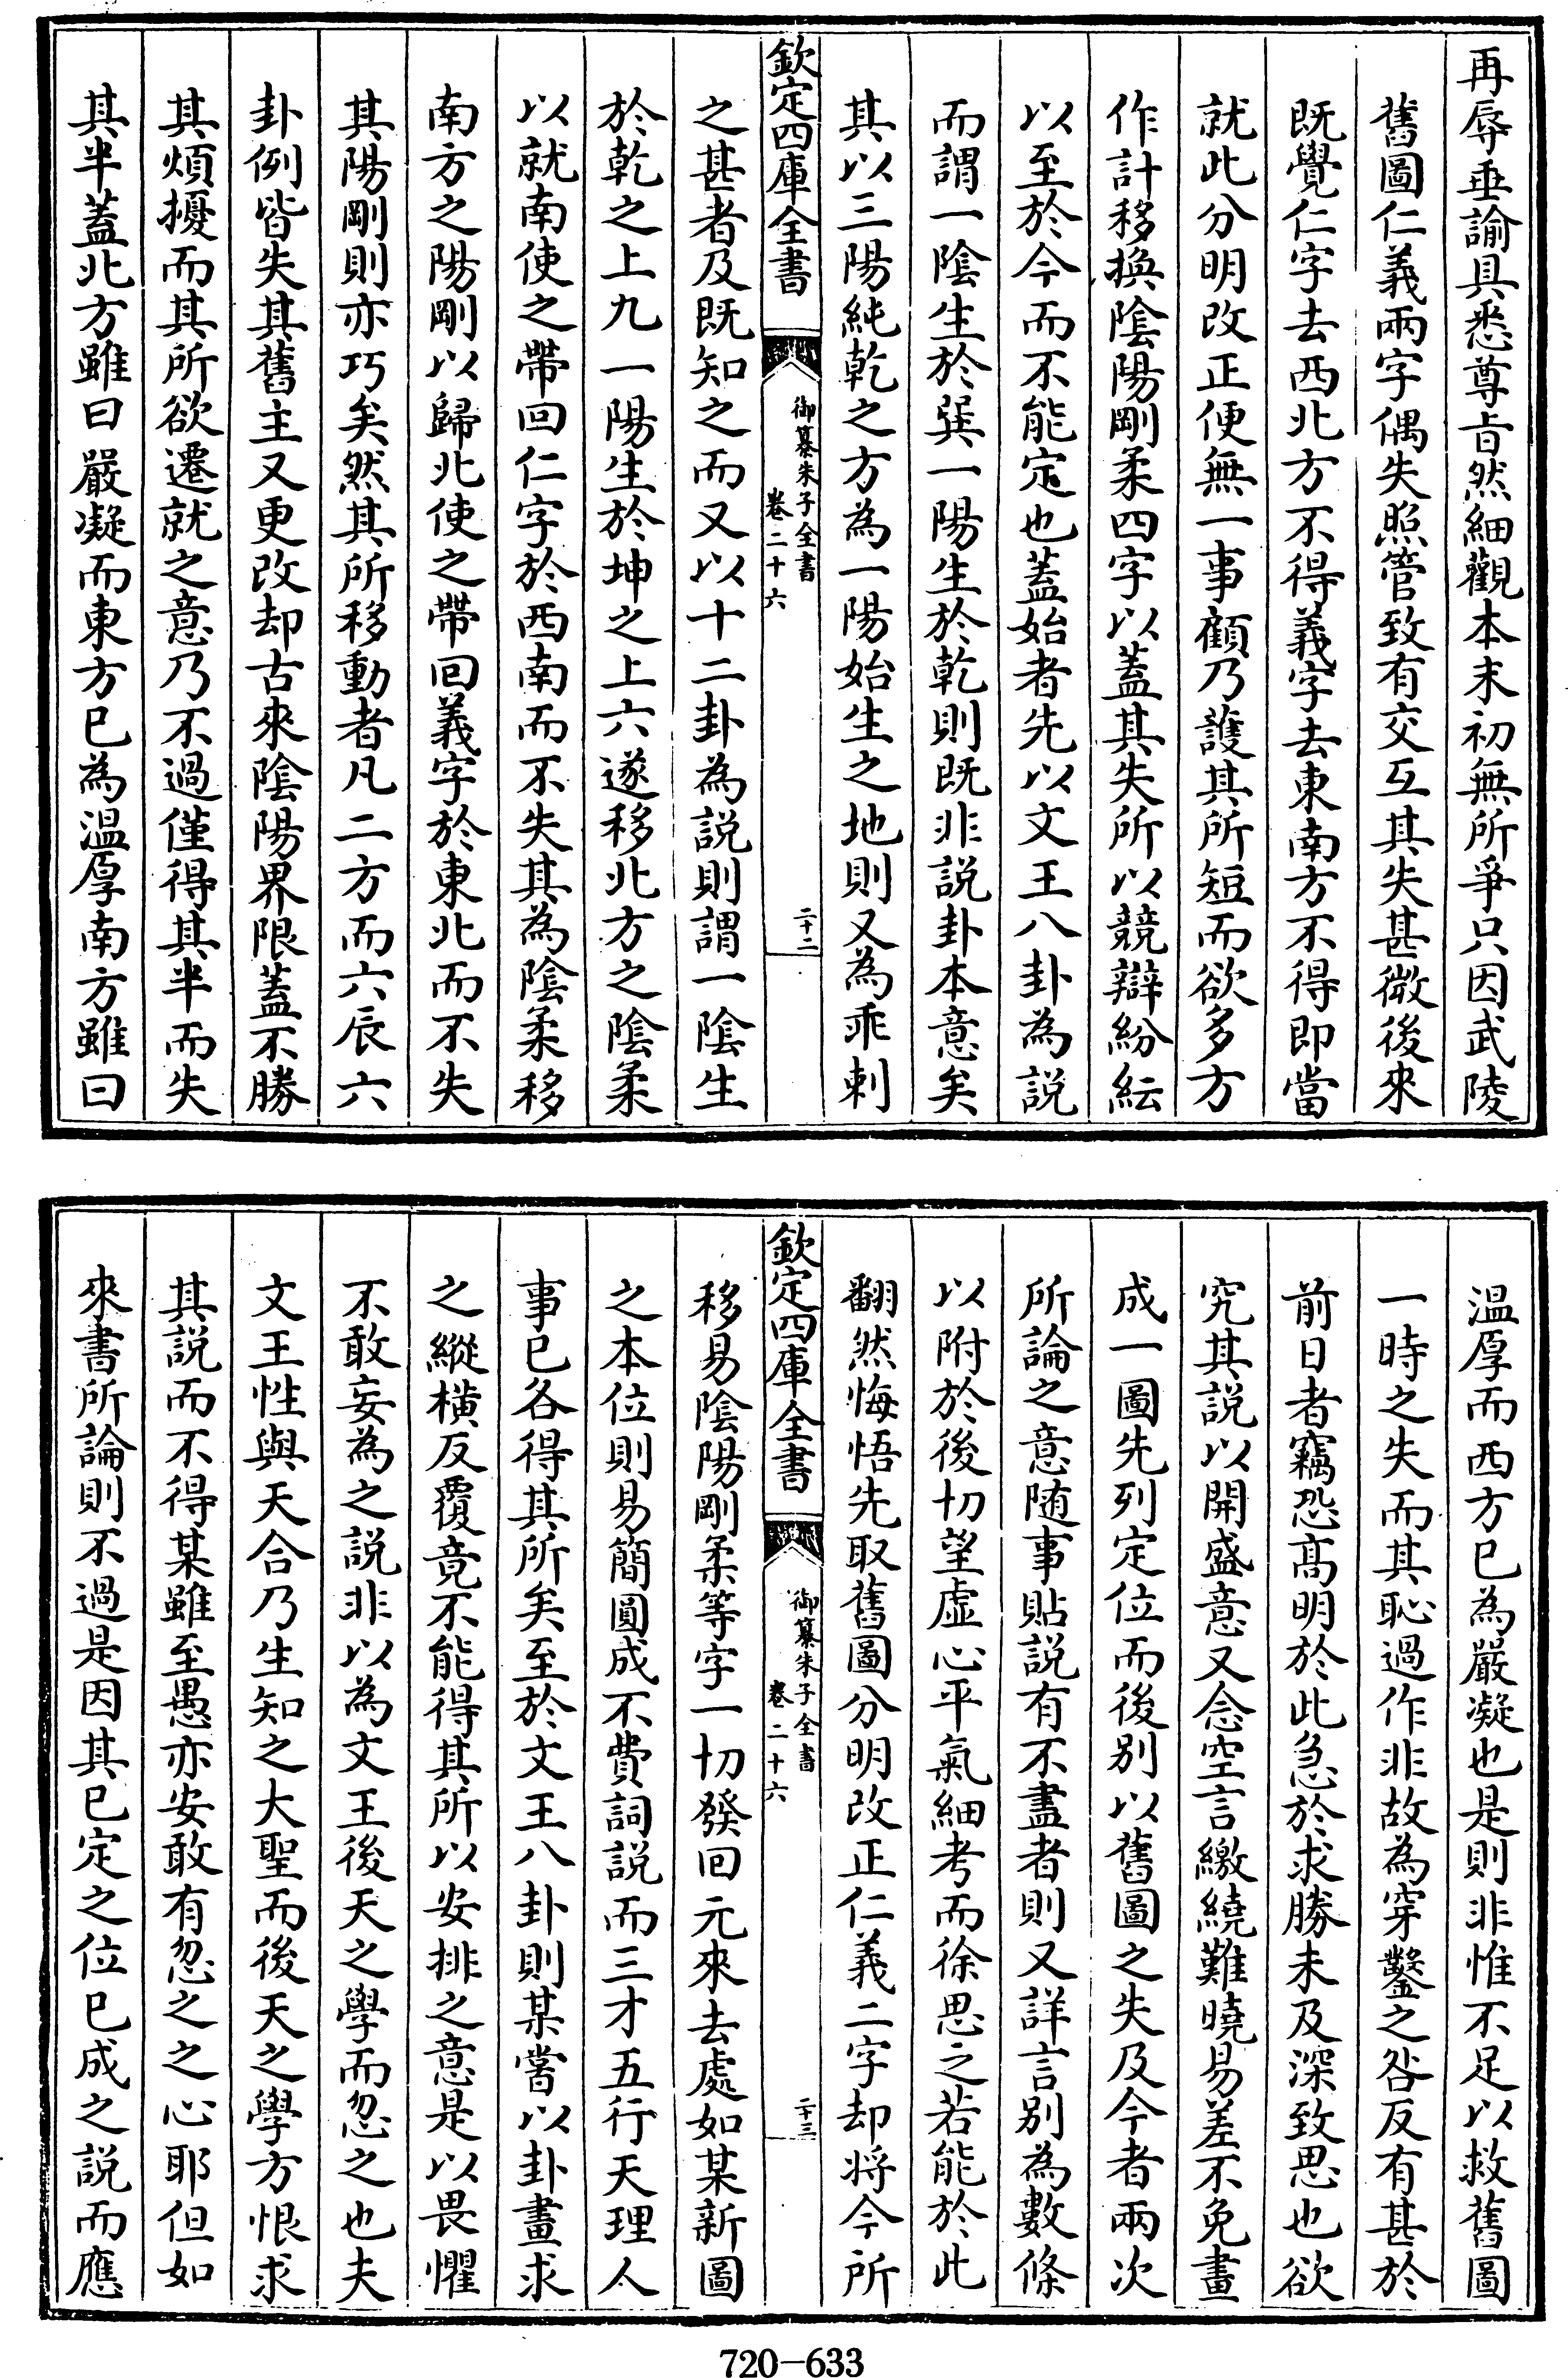 再辱垂諭具悉尊㫖然細觀本末初無所爭只因武陵
舊圖仁義兩字偶失照管致有交互其失甚微後來
既覺仁字去西北方不得義字去東南方不得即當
就此分明改正便無一事顧乃護其所短而欲多方
作計移換陰陽剛柔四字以蓋其失所以競辯紛紜
以至於今而不能定也蓋始者先以文王八卦為説
而謂一陰生於巽一陽生於乾則既非説卦本意矣
其以三陽純乾之方為一陽始生之地則又為乖剌
欽定四庫全書
御纂朱子全書
卷二十六
二十二
之甚者及既知之而又以十二卦為説則謂一陰生
於乾之上九一陽生於坤之上六遂移北方之陰柔
以就南使之帶回仁字於西南而不失其為陰柔移
南方之陽剛以歸北使之帶回義字於東北而不失
其陽剛則亦巧矣然其所移動者凡二方而六辰六
卦例皆失其舊主又更改却古來陰陽界限蓋不勝
其煩擾而其所欲遷就之意乃不過僅得其半而失
其半蓋北方雖曰嚴凝而東方已為温厚南方雖曰
温厚而西方已為嚴凝也是則非惟不足以救舊圖
一時之失而其恥過作非故為穿鑿之咎反有甚於
前日者竊恐髙明於此急於求勝未及深致思也欲
究其説以開盛意又念空言繳繞難曉易差不免畫
成一圖先列定位而後别以舊圖之失及今者兩次
所論之意随事貼説有不盡者則又詳言别為數條
以附於後切望虛心平氣細考而徐思之若能於此
翻然悔悟先取舊圖分明改正仁義二字却将今所
欽定四庫全書
御纂朱子全書
卷二十六
二十三
移易陰陽剛柔等字一切發回元來去處如某新圖
之本位則易簡圓成不費詞説而三才五行天理人
事已各得其所矣至於文王八卦則某嘗以卦畫求
之縱橫反覆竟不能得其所以安排之意是以畏懼
不敢妄為之説非以為文王後天之學而忽之也夫
文王性與天合乃生知之大聖而後天之學方恨求
其説而不得某雖至愚亦安敢有忽之之心耶但如
來書所論則不過是因其已定之位已成之説而應
720-633